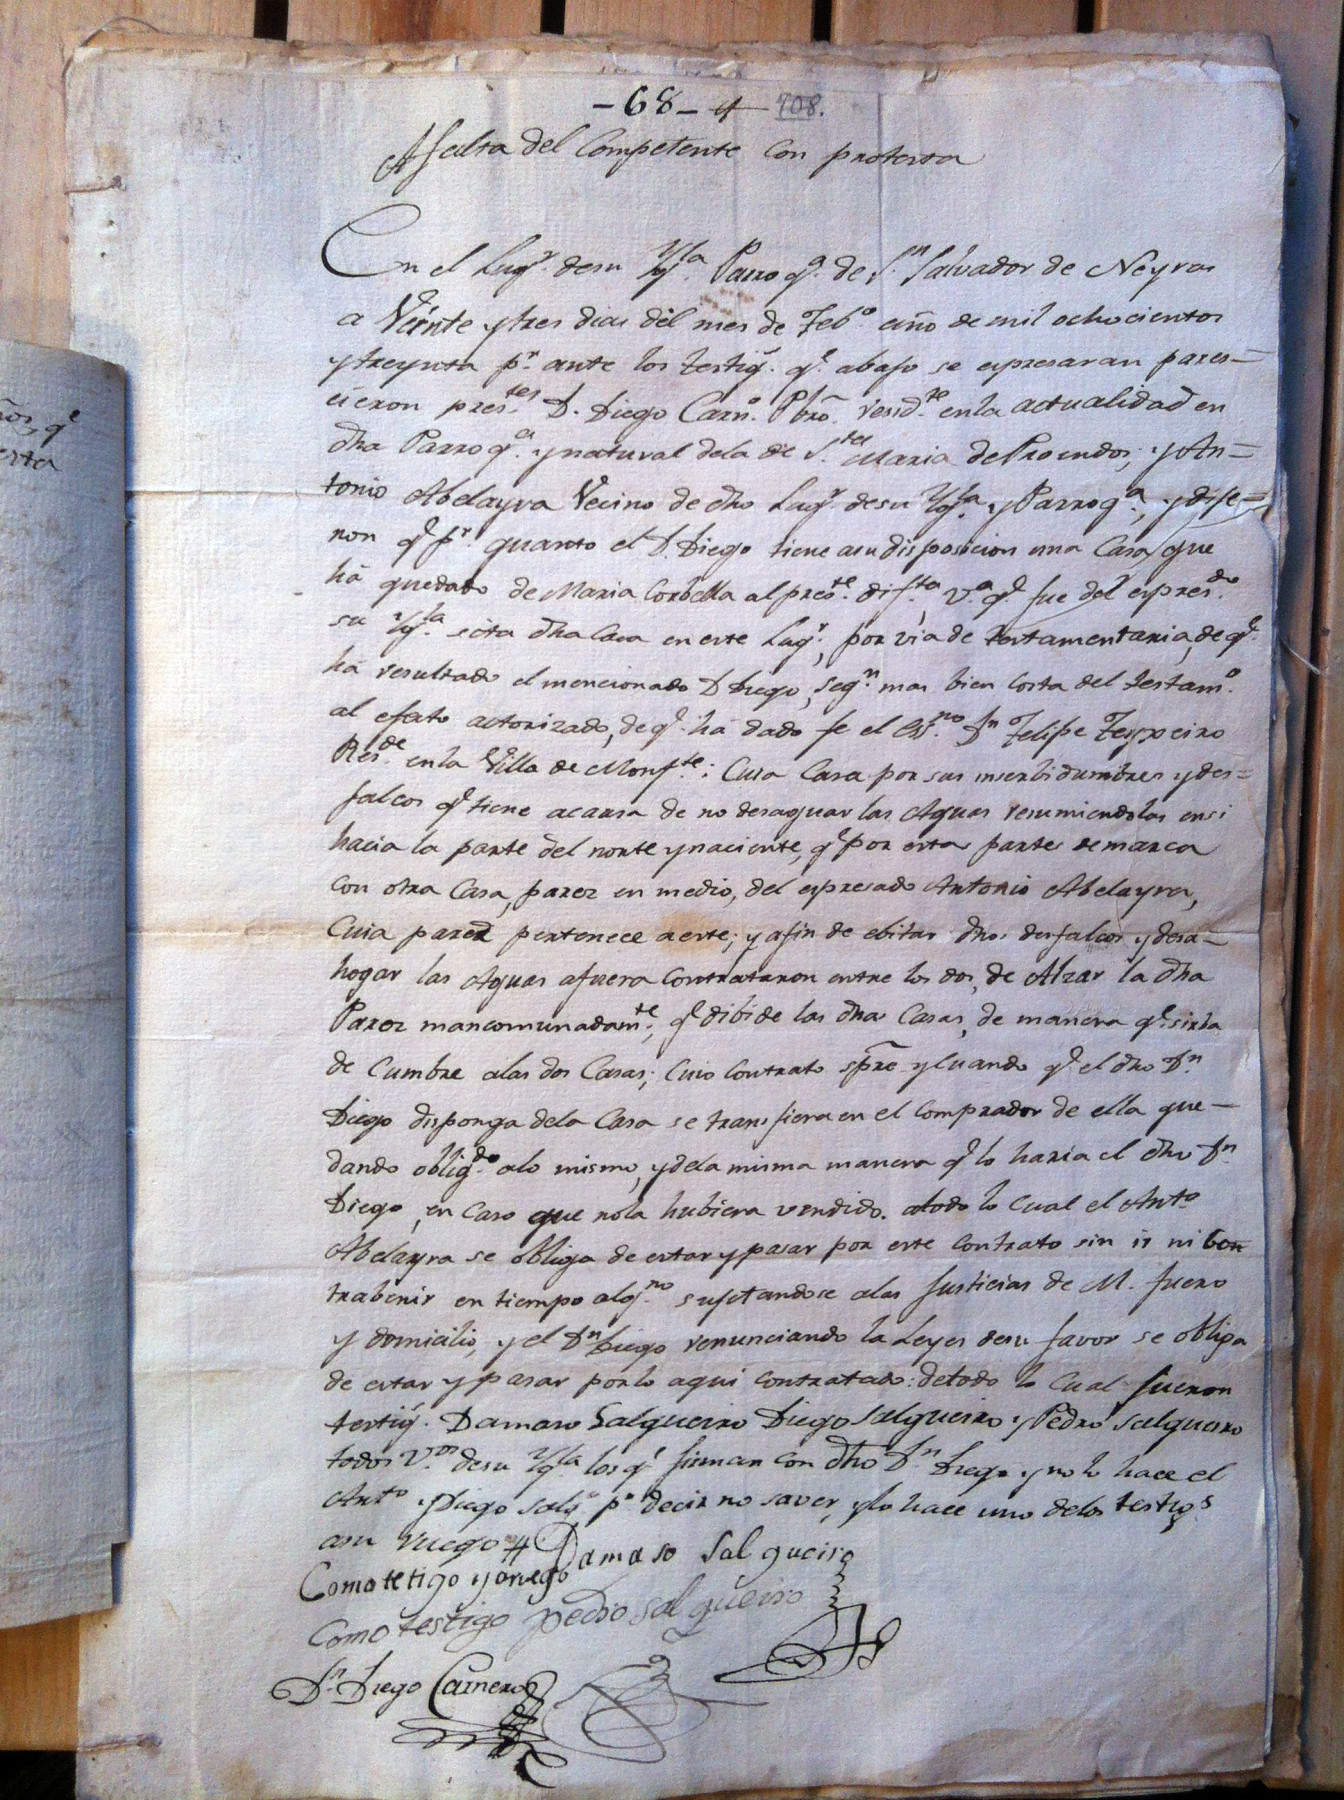 -68- 708.
A falta del Competente con protesta
En el Lugr. desu Ygla. Parroqa. de Sn. Salvador de Neyras
a Veinte ytres dias del mes de Febo. año de mil ochocientos
ytreynta pr. ante los testigs. qe. abajo se espresaran pares=
cieron prestes. D. Diego Carno. Pbro. residte. enla actualidad en
dha Parroqa. ynatural dela de Sta. Maria de Proendos; y An=
tonio Abelayra Vecino de dho Lugr. desu Ygla. y Parroqa., ydije=
ron qe. pr. quanto el D. Diego tiene asu disposicion una Casa que
há quedado de Maria Corbella al preste. difta. va. qe. fue del espresdo.
su Ygla. sita dha Casa en este Lugr., por via de testamentaria, de qe.
há resultado el mencionado D Diego, segn. mas bien costa del testamo.
al efeto autorizado, de qe. há dado fe el Essno. Dn Felipe Teyxeiro
Resde. enla Villa de Monfte.; Cuia Casa por sus inserbidumbres ydes=
falcos qe. tiene acausa de no desaguar las Aguas resumiendolas ensi
hacia la parte del norte ynaciente, qe. por esta parte demarca
con otra Casa, pared en medio, del espresado Antonio Abelayra,
Cuia pared pertenece a este; y afin de ebitar dhos desfalcos y desa=
hogar las Aguas afuera Contrataron entre los dos, de Alzar la dha
Pared mancomunadamte., qe. dibide las dhas Casas, de manera qe. sirba
de Cumbre alas dos Casas; Cuio Contrato spre ycuando qe. el dho Dn.
Diego disponga dela Casa se transfiera en el comprador de ella que=
dando obligdo. alo mismo, ydela misma manera qe. lo haria el dho Dn.
Diego, en caso que nola hubiera vendido. atodo lo cual el Anto.
Abelayra se obliga de estar ypasar por este contrato sin ir ni Con
trabenir en tiempo algno. sujetandose alas Justicias de M. fuero
y domicilio, y el Dn Diego renunciando la Leyes desu favor se obliga
de estar y pasar porlo aqui contratado: detodo lo Cual fueron
testigs. Damaso Salgueiro Diego Salgueiro y Pedro Salgueiro
todos Vos. desu Ygla. los qe. firman con dho Dn. Diego y no lo hace el
Anto. yDiego Salgo. pr. decir no saver, ylo hace uno delos testigos
asu ruego #
Como tetigo y aruego Damaso Salgueiro
Como testigo pedro salgueiro
Dn. Diego Carnero
ños, qe
erta